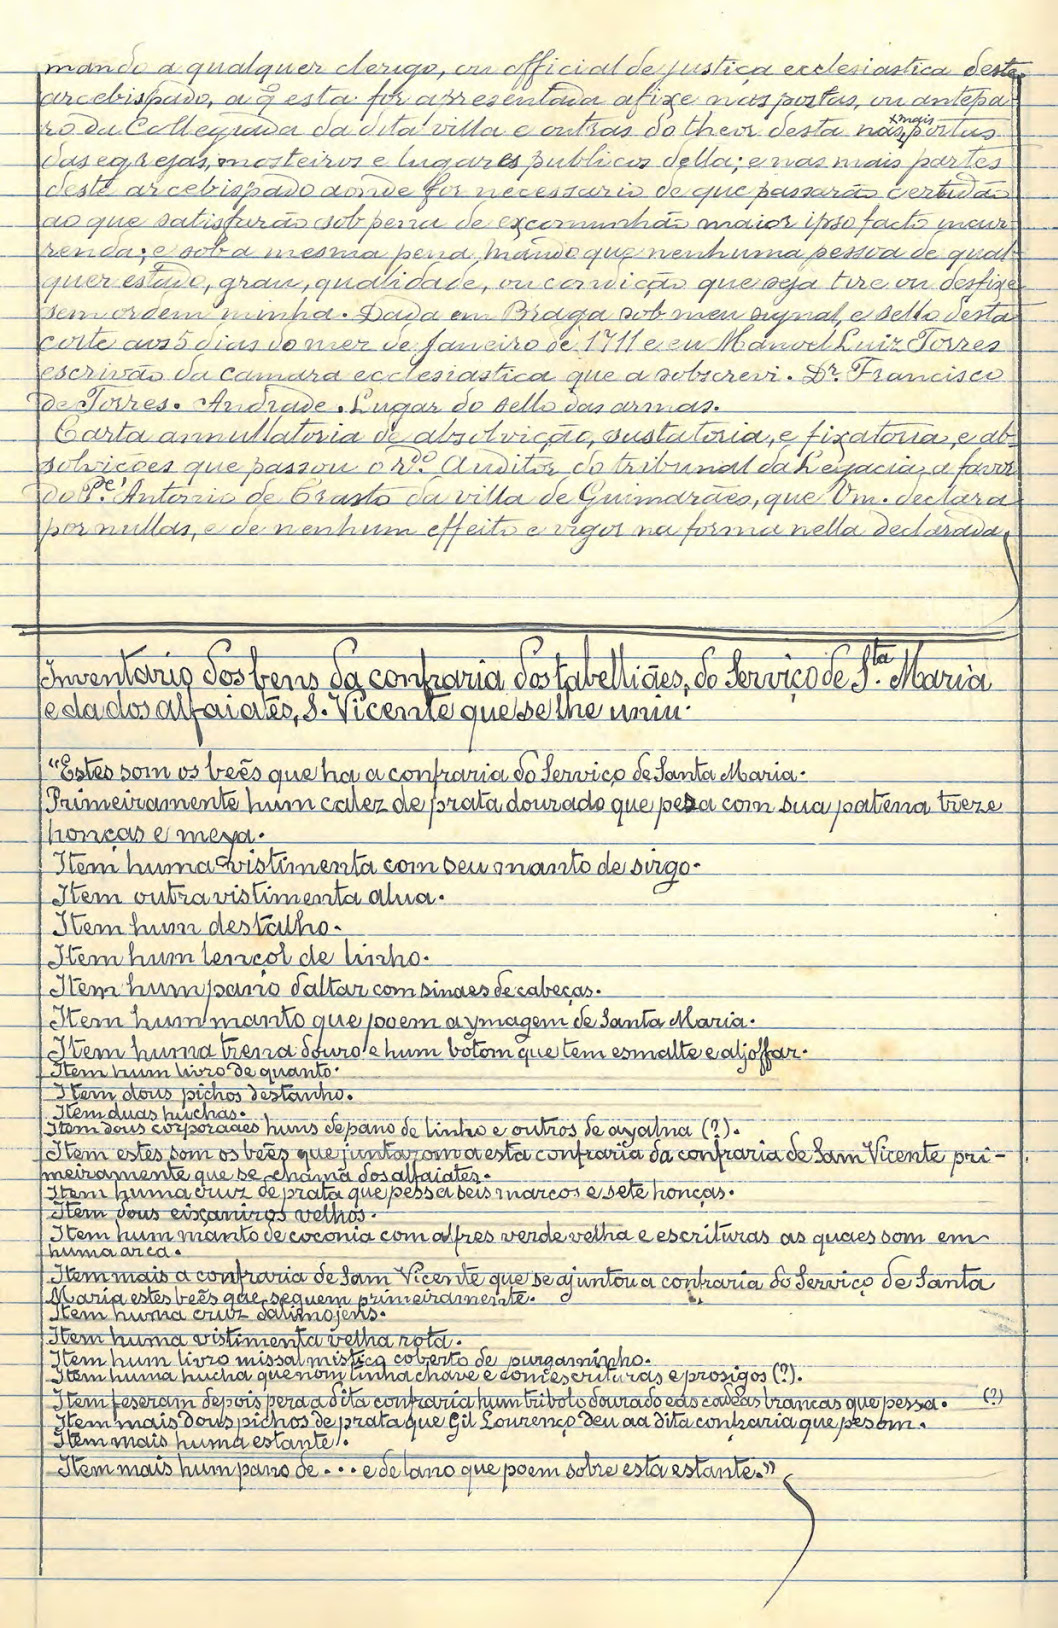 mando a qualquer clerigo, ou official de justiça ecclesiastica deste
arcebispado, a q̃ esta for apresentada afixe nas portas, ou antepa-
ro da Collegiada da dita villa e outras do theor desta nas mais portas
das egrejas, mosteiros e lugares publicos della; e nas mais partes
deste arcebispado aonde for necessario de que passarão certidão
ao que satisfarão sob pena de excomunhão maior ipso facto incur-
renda; e sob a mesma pena mando que nenhuma pessoa de qual-
quer estado, grau, qualidade, ou condição que seja tire ou desfixe
sem ordem minha. Dada em Braga sob meu signal, e sello desta
corte aos 5 dias do mez de Janeiro de 1711 e eu Manoel Luiz Torres
escrivão da camara ecclesiastica que a sobscrevi. Dr. Francisco
de Torres. Andrade. Lugar do sello das armas.
Carta annullatoria de absolvição, sustatoria, e fixatoria, e ab-
solvições que passou o rdo. Auditor do tribunal da Legacia, a favor
do Pe. Antonio de Crasto da villa de Guimarães, que Vm. declara
por nullas, e de nenhum effeito e vigor na forma nella declarada.
Inventario dos bens da confraria dos tabelliães, do Serviço de Sta. Maria
e da dos alfaiates, S. Vicente que se lhe uniu.
"Estes som os beẽs que ha a confraria do Serviço de Santa Maria.
Primeiramente hum calez de prata dourado que pesa com sua patena treze
honças e meya.
Item huma vistimenta com seu manto de sirgo.
Item outra vistimenta alua.
Item hum destalho.
Item hum lençol de linho.
Item hum pano d'altar com sinaes de cabeças.
Item hum manto que poem a ymagem de Santa Maria.
Item huma trena douro e hum botom que tem esmalte e aljoffar.
Item hum livro de quanto.
Item dous pichos destanho.
Item duas huchas.
Item dous corporaaes huns de pano de linho e outros de ayalna (?).
Item estes som os beẽs que juntarom a esta confraria da confraria de Sam Vicente pri-
meiramente que se chama dos alfaiates.
Item huma cruz de prata que pessa seis marcos e sete honças.
Item dous eisçaniros velhos.
Item hum manto de coconia com alfres verde velha e escrituras as quaes som em
huma arca.
Item mais a confraria de Sam Vicente que se ajuntou a confraria do Serviço de Santa
Maria estes beẽs que seguem primeiramente.
Item huma cruz dalimojens.
Item huma vistimenta velha rota.
Item hum livro missal mistico coberto de purgaminho.
Item huma hucha que nom tinha chave e com escrituras e prosigos (?).
Item feseram depois pera a dita confraria hum tribolo dourado e as cadeas brancas que pessa. (?)
Item mais dous pichos de prata que Gil Lourenço deu aa dita confraria que pesom.
Item mais huma estante.
Item mais hum pano de ... e de lano que poem sobre esta estante."